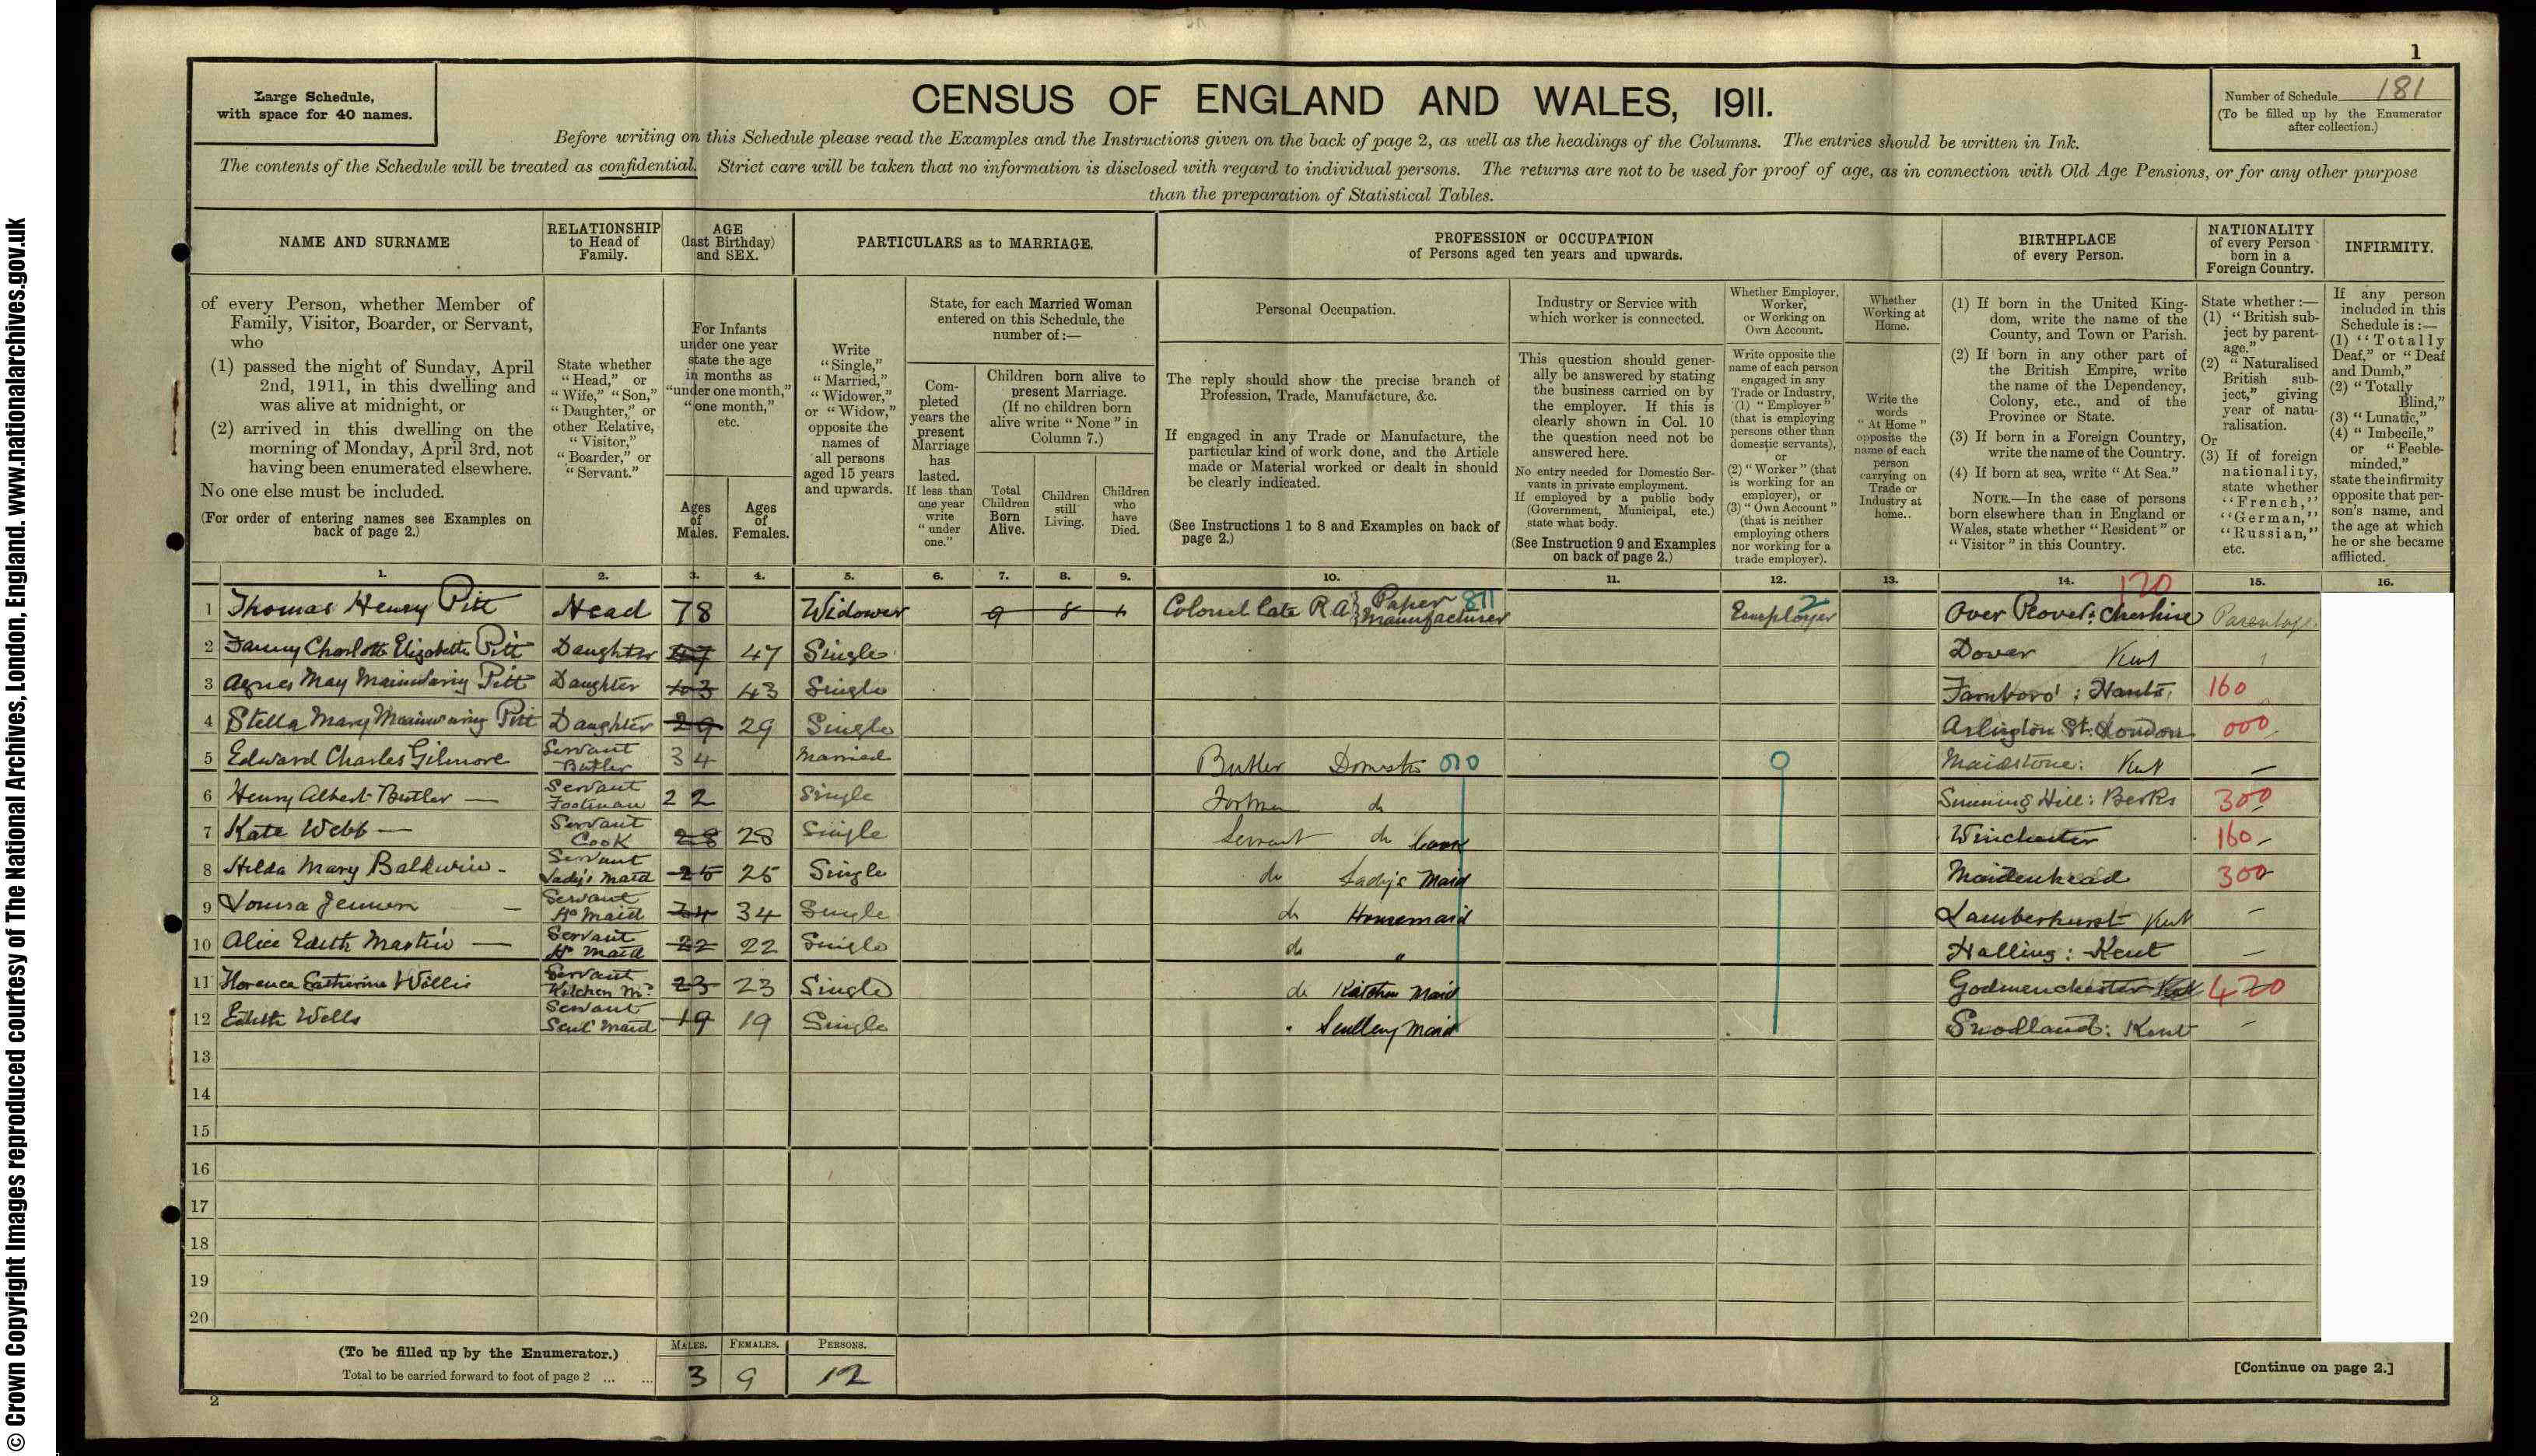 1
Large Schedule,
with space for 40 names.
CENSUS OF ENGLAND AND WALES, 1911.
Number of Schedule 181
(To be filled up by the Enumerator
after collection.)
Before writing on this Schedule please read the Examples and the Instructions given on the back of page 2, as well as the headings of the Columns. The entries should be written in Ink.
The contents of the Schedule will be treated as confidential. Strict care will be taken that no information is disclosed with regard to individual persons. The returns are not to be used for proof of age, as in connection with Old Age Pensions, or for any other purpose
than the preparation of Statistical Tables.
NAME AND SURNAME
of every Person, whether Member of
Family, Visitor, Boarder, or Servant,
who
(1) passed the night of Sunday, April
2nd, 1911, in this dwelling and
was alive at midnight, or
(2) arrived in this dwelling on the
morning of Monday, April 3rd, not
having been enumerated elsewhere.
No one else must be included.
(For order of entering names see Examples on
back of page 2.)
RELATIONSHIP
to Head of
Family.
State whether
"Head," or
"Wife," "Son,"
"Daughter," or
other Relative,
"Visitor,"
"Boarder," or
"Servant."
AGE
(last Birthday)
and SEX.
For Infants
under one year
state the age
in months as
"under one month,"
"one month,"
etc.
Ages
of
Males.
Ages
of
Females.
PARTICULARS as to MARRIAGE.
Write
"Single,"
"Married,"
"Widower,"
or "Widow,"
opposite the
names of
all persons
aged 15 years
and upwards.
State, for each Married Woman
entered on this Schedule, the
number of:—
Com-
pleted
years the
present
Marriage
has
lasted.
If less than
one year
write
"under
one."
Children born alive to
present Marriage.
(If no children born
alive write "None" in
Column 7.)
Total
Children
Born
Alive.
Children
still
Living.
Children
who
have
Died.
PROFESSION or OCCUPATION
of Persons aged ten years and upwards.
Personal Occupation.
The reply should show the precise branch of
Profession, Trade, Manufacture, &c.
If engaged in any Trade or Manufacture, the
particular kind of work done, and the Article
made or Material worked or dealt in should
be clearly indicated.
(See Instructions 1 to 8 and Examples on back of
page 2.)
Industry or Service with
which worker is connected.
This question should gener-
ally be answered by stating
the business carried on by
the employer. If this is
clearly shown in Col. 10
the question need not be
answered here.
No entry needed for Domestic Ser-
vants in private employment.
If employed by a public body
(Government, Municipal, etc.)
state what body.
(See Instruction 9 and Examples
on back of page 2.)
Whether Employer,
Worker,
or Working on
Own Account.
Write opposite the
name of each person
engaged in any
Trade or Industry,
(1) "Employer"
(that is employing
persons other than
domestic servants),
or
(2) "Worker" (that
is working for an
employer), or
(3) "Own Account"
(that is neither
employing others
nor working for a
trade employer).
Whether
Working at
Home.
Write the
words
"At Home"
opposite the
name of each
person
carrying on
Trade or
Industry at
home.
BIRTHPLACE
of every Person.
(1) If born in the United King-
dom, write the name of the
County, and Town or Parish.
(2) If born in any other part of
the British Empire, write
the name of the Dependency,
Colony, etc., and of the
Province or State.
(3) If born in a Foreign Country,
write the name of the Country.
(4) If born at sea, write "At Sea."
NOTE.—In the case of persons
born elsewhere than in England or
Wales, state whether "Resident" or
"Visitor" in this Country.
NATIONALITY
of every Person
born in a
Foreign Country.
State whether:—
(1) "British sub-
ject by parent-
age."
(2) "Naturalised
British sub-
ject," giving
year of natu-
ralisation.
Or
(3) If of foreign
nationality,
state whether
"French,"
"German,"
"Russian,"
etc.
INFIRMITY.
If any person
included in this
Schedule is:—
(1) "Totally
Deaf," or "Deaf
and Dumb,"
(2) "Totally
Blind,"
(3) "Lunatic,"
(4) "Imbecile,"
or "Feeble-
minded,"
state the infirmity
opposite that per-
son's name, and
the age at which
he or she became
afflicted.
1. 2. 3. 4. 5. 6. 7. 8. 9. 10. 11. 12. 13. 14. 15. 16.
120
1 Thomas Henry Pitt Head 78 Widower 9 8 1 Colonel late R.A. Paper Manufacturer 811 Employer 2 Over Peover: Cheshire Parentage
2 Fanny Charlotte Elizabeth Pitt Daughter 47 47 Single Dover Kent
3 Agnes May Mainwaring Pitt Daughter 43 43 Single Farnboro': Hants. 160
4 Stella Mary Mainwaring Pitt Daughter 29 29 Single Arlington St: London 000
5 Edward Charles Gilmore Servant Butler 34 Married Butler Domestic 010 0 Maidstone: Kent —
6 Henry Albert Butler — Servant Footman 22 Single Footman do Sunning Hill: Berks 300
7 Kate Webb — Servant Cook 28 28 Single Servant do Cook Winchester 160
8 Hilda Mary Baldwin - Servant Lady's Maid 25 25 Single do Lady's Maid Maidenhead 300
9 Louisa Jenner — Servant Ho Maid 34 34 Single do Housemaid Lamberhurst Kent —
10 Alice Edith Martin — Servant Ho Maid 22 22 Single do " Halling: Kent —
11 Florence Catherine Willis Servant Kitchen Md 23 23 Single do Kitchen Maid Godmenchester 420
12 Edith Wells Servant Scul' Maid 19 19 Single " Scullery Maid Snodland: Kent —
13
14
15
16
17
18
19
20
(To be filled up by the Enumerator.)
Total to be carried forward to foot of page 2 ... ...
MALES. FEMALES. PERSONS.
3 9 12
[Continue on page 2.]
2
© Crown Copyright Images reproduced courtesy of The National Archives, London, England. www.nationalarchives.gov.uk